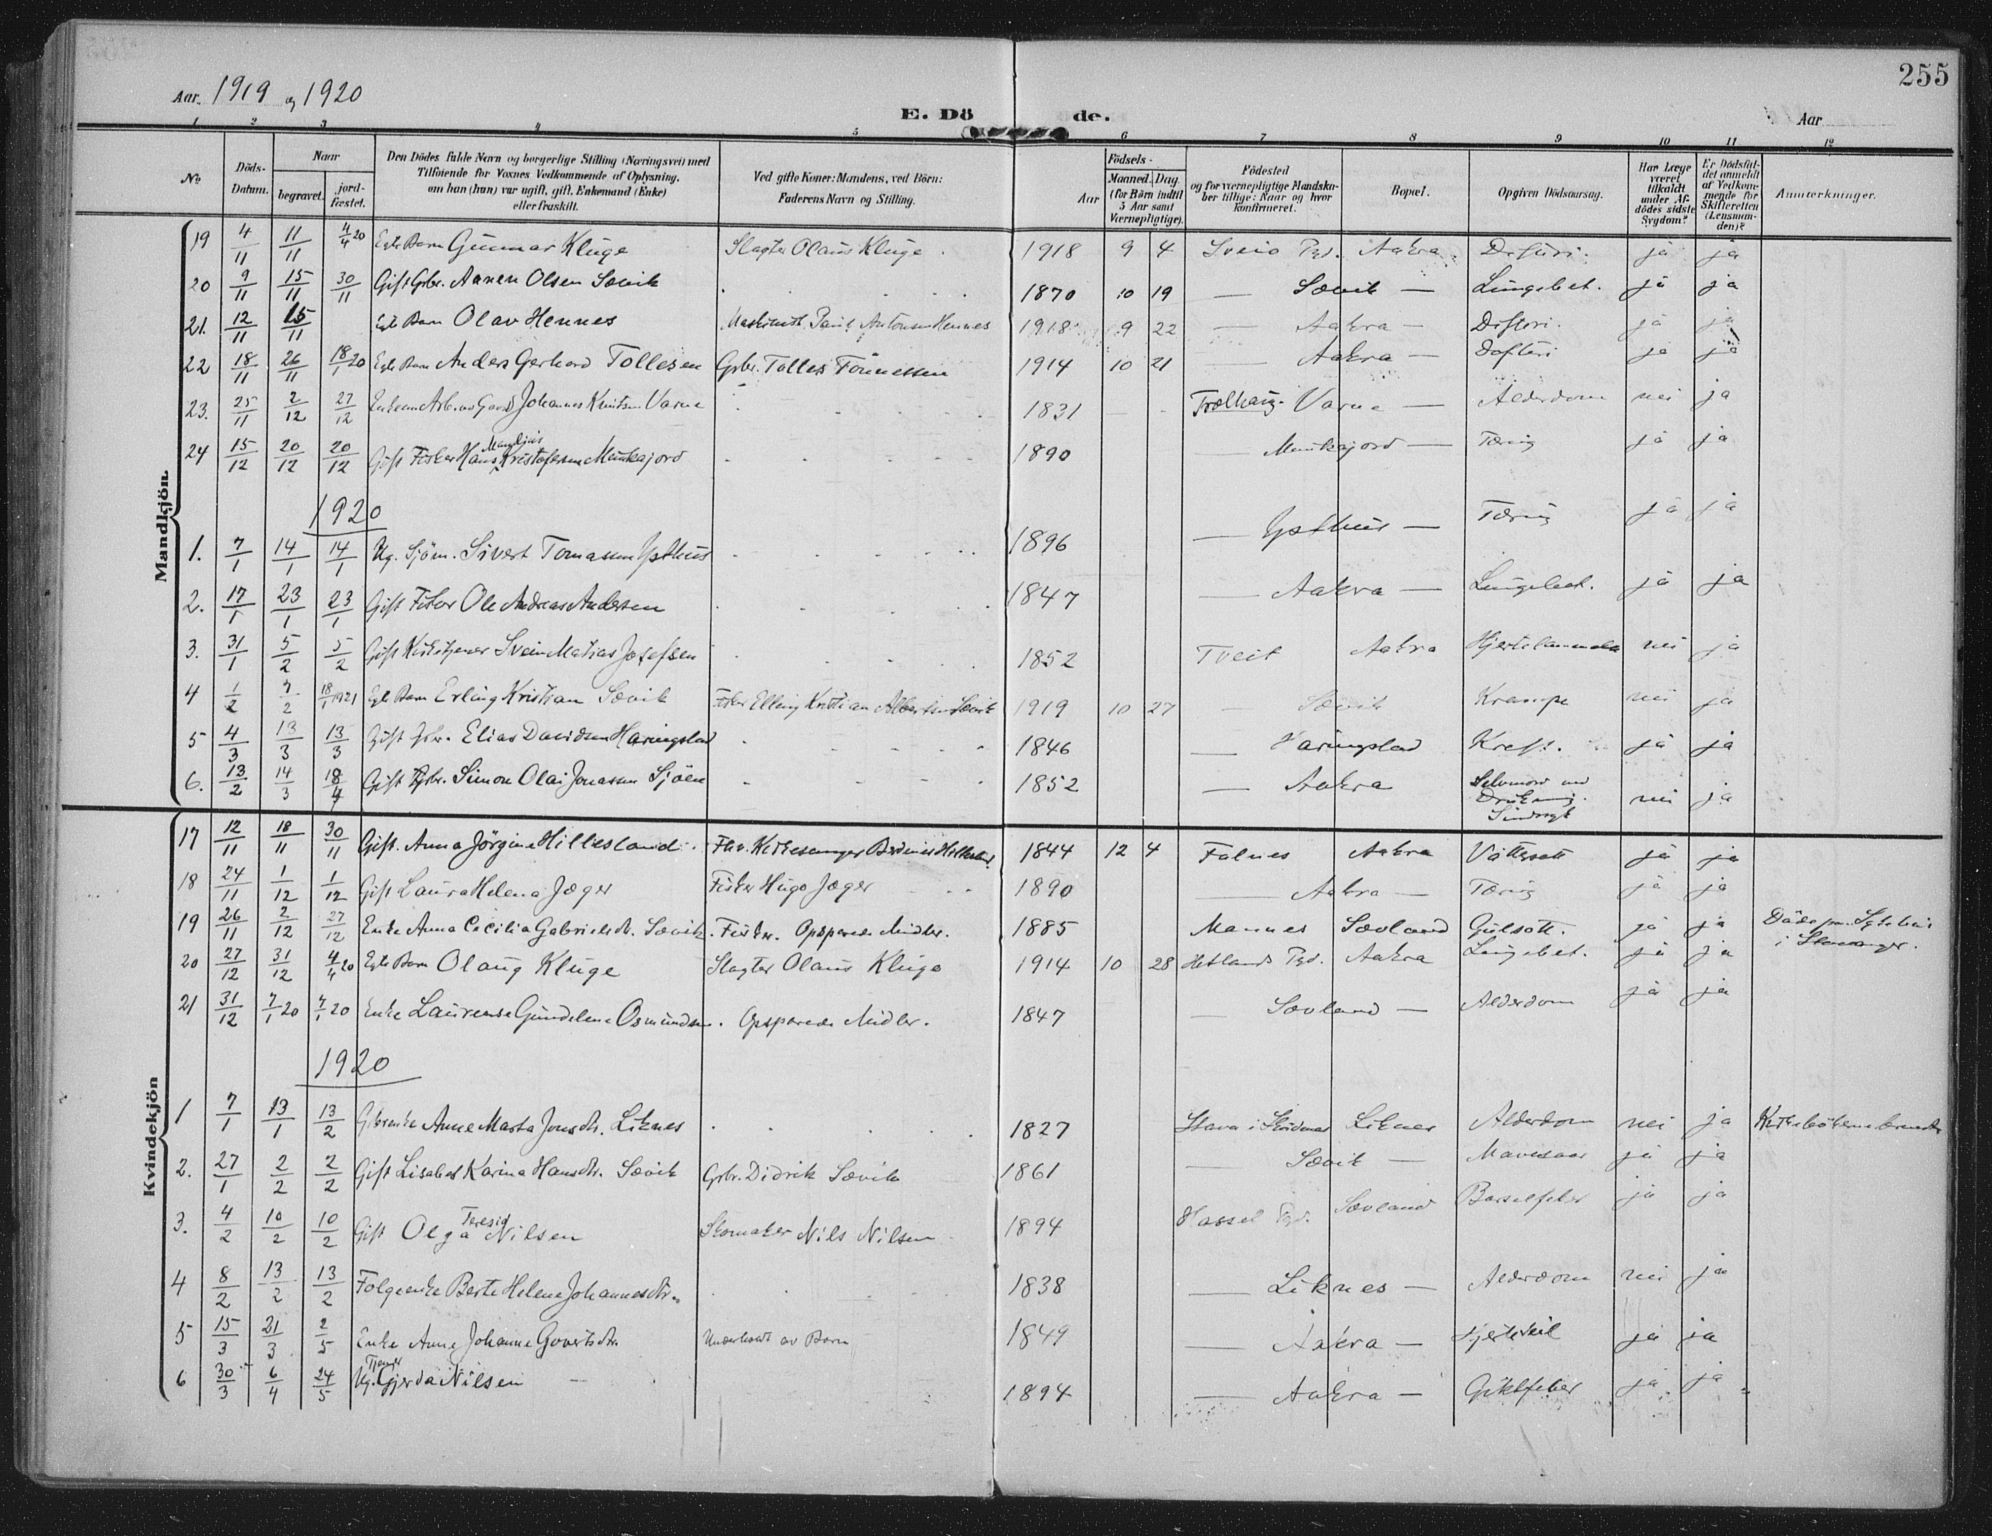 255
Aar. 1919 og 1920
E. Döde.
Aar
1 2 3 4 5 6 7 8 9 10 11 12
No.
Döds-Datum.
Naar
begravet.
jord-fæstet.
Den Dödes fulde Navn og borgerlige Stilling (Næringsvei) med
Tilföiende for Voxnes Vedkommende af Oplysning,
om han (hun) var ugift, gift, Enkemand (Enke)
eller fraskilt.
Ved gifte Koner: Mandens, ved Börn:
Faderens Navn og Stilling.
Aar
Födsels-
Maaned. Dag
(for Börn indtil
5 Aar samt
Værnepligtige).
Födested
og for værnepligtige Mandskaber tillige: Naar og hvor konfirmeret.
Bopæl.
Opgiven Dödsaarsag.
Har Læge været tilkaldt under Afdödes sidste Sygdom?
Er Dödsfaldet anmeldt af Vedkommende for Skifteretten (Lensmanden)?
Anmerkninger.
Mandkjön.
19 4/11 11/11 4/4 20 Egte Barn Gunnar Kluge Slagter Olaus Kluge 1918 9 4 Sveio Pgd. Aakra Difteri. ja ja
20 9/11 15/11 30/11 Gift Grbr. Aanen Olsen Sævik 1870 10 19 — Sævik — Lungebet. ja ja
21. 12/11 15/11 Egte Barn Olav Hennes Maskinist Paul Antonsen Hennes 1918 9 22 — Aakra — Difteri. ja ja
22 18/11 26/11 18/1 20 Egte Barn Anders Gerhard Tollesen Grbr. Tolles Tönnessen 1914 10 21 — Aakra — Difteri ja ja
23. 25/11 2/12 27/12 Johannes Knutsen Varne 1831 — Varne — Alderdom nei ja
24 15/12 20/12 20/12 Gift Fisker Hans Mandius Kristofersen Munkajord 1890 Munkajord — Tæring ja ja
1920
1. 7/1 14/1 14/1 Ug. Sjöm. Sivert Tomassen Ysthus 1896 — Ysthus — Tæring ja ja
2. 17/1 23/1 23/1 Gift Fisker Ole Andreas Andersen 1847 — Aakra — Lungebet. ja ja
3. 31/1 5/2 5/2 Gift Kirketjener Svein Matias Josefsen 1852 Tveit Aakra Hjertelammelse nei ja
4 1/2 7/2 18/1 1921 Egte Barn Erling Kristian Sævik Fisker Elling Kristian Albertsen Sævik 1919 10 27 — Sævik Krampe nei ja
5 4/3 13/3 13/3 Gift Grbr. Elias Davidsen Haringstad 1846 — Haringstad Kreft. ja ja
6. 13/2 14/3 18/4 Gift Grbr. Simon Olai Jonassen Sjöen 1852 — Aakra Selvmord ved Drukning. Sindsygt nei ja
Kvindekjön
17 12/11 18/11 30/11 Gift. Anna Jörgine Hillesland Fhv. Kirkesanger 1844 12 4 Falnes Aakra Vattersott ja ja
18 24/11 1/12 1/12 Gift Laura Helena Jæger Fisker Hugo Jæger 1890 — Aakra — Tæring ja ja
19 26/11 2/12 27/12 Enke Anna Cecilia Gabrielsdtr. Sævik. Fisker. Opsparede Midler. 1885 Mannes Sævland Gulsott. ja ja Döde paa Sykehus i Stavanger.
20 27/12 31/12 4/4 20 Egte Barn Olaug Kluge Slagter Olaus Kluge 1914 10 28 Hetlands Pgd. Aakra Lungebet. ja ja
21 31/12 7/1 20 7/1 20 Enke Laurense Gundelene Osmundsen. Opsparede Midler. 1847 — Sævland — Alderdom ja ja
1920
1 7/1 13/1 13/2 Gbrenke Anne Marta Jonsdtr. Liknes 1827 Stava i Skudenes Liknes Alderdom nei ja
2. 27/1 2/2 2/2 Gift Lisabet Karina Hansdtr. Sævik Grbr. Didrik Sævik 1861 — Sævik — Mavesaar ja ja
3. 4/2 10/2 10/2 Gift Olga Teresia Nilsen Skomaker Nils Nilsen 1894 Hassel Pgd. Sævland Barselfeber ja ja
4 8/2 13/2 13/2 Folgeenke Berte Helene Johannesdtr. 1838 — Liknes — Alderdom nei ja
5 15/3 21/3 2/5 Enke Anne Johanne Govertsdtr. Underholdt av Barn 1849 — Aakra — Hjertefeil ja ja
6 30/3 6/4 24/5 Ug. Tjener Gjerda Nilsen 1894 — Aakra — Giktfeber ja ja